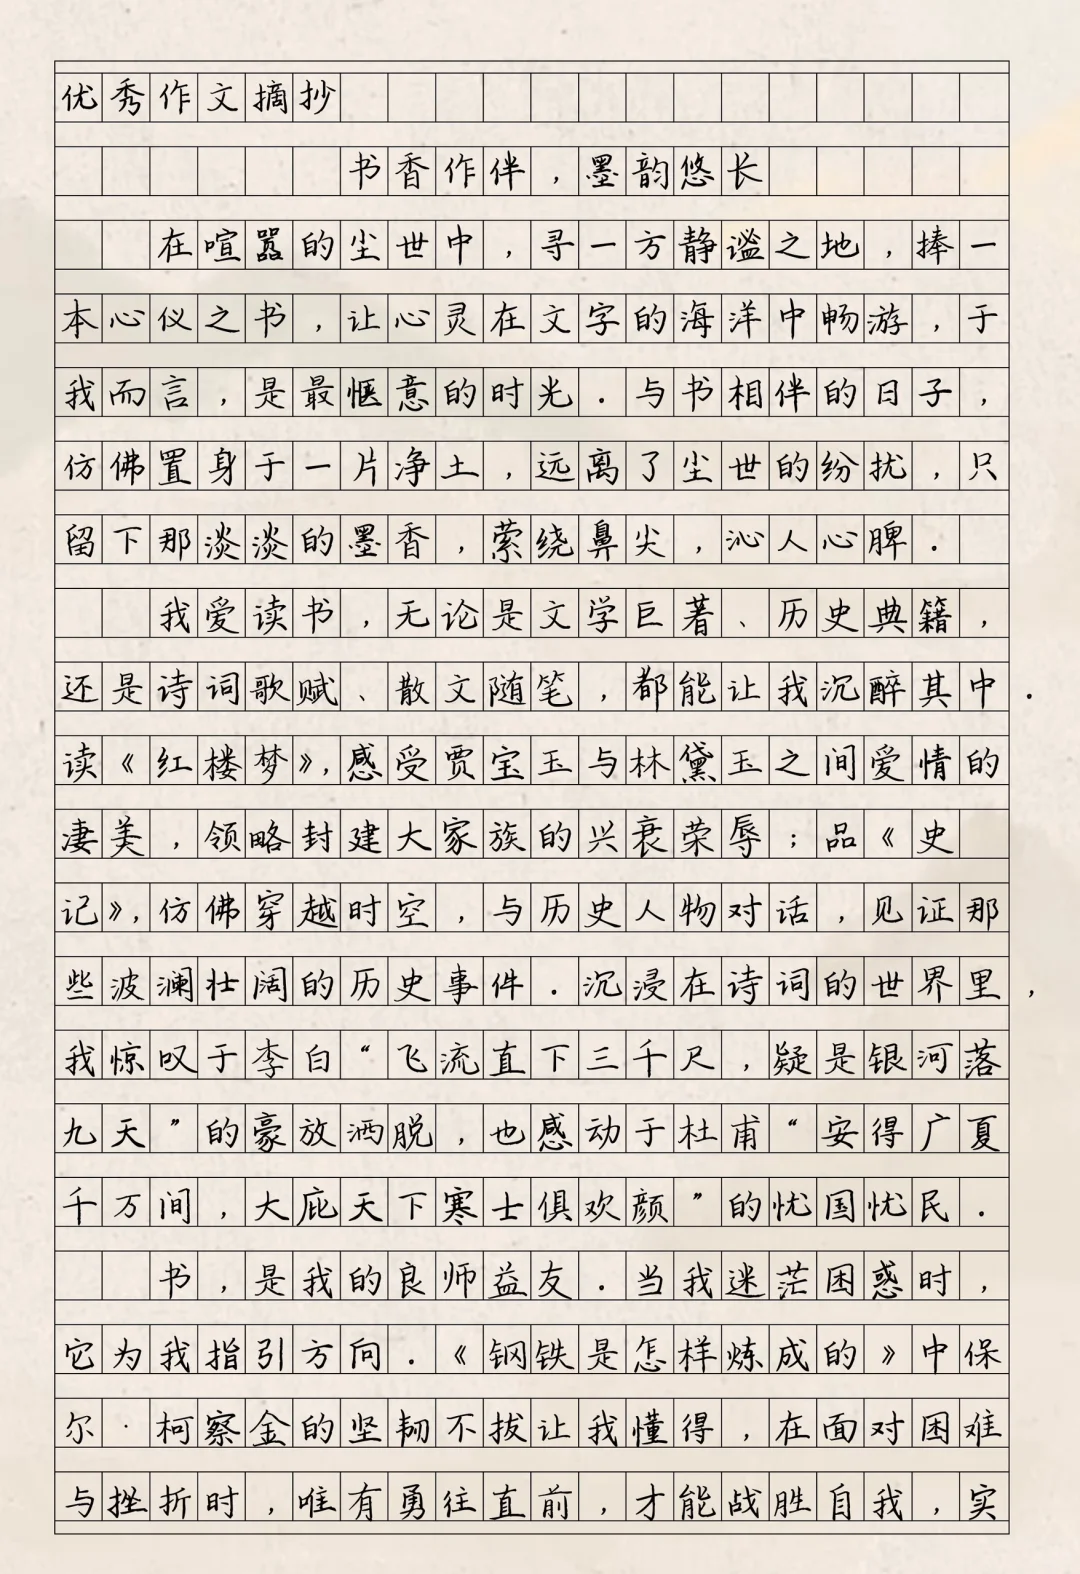 优秀作文摘抄
书香作伴，墨韵悠长
在喧嚣的尘世中，寻一方静谧之地，捧一
本心仪之书，让心灵在文字的海洋中畅游，于
我而言，是最惬意的时光．与书相伴的日子，
仿佛置身于一片净土，远离了尘世的纷扰，只
留下那淡淡的墨香，萦绕鼻尖，沁人心脾．
我爱读书，无论是文学巨著、历史典籍，
还是诗词歌赋、散文随笔，都能让我沉醉其中．
读《红楼梦》，感受贾宝玉与林黛玉之间爱情的
凄美，领略封建大家族的兴衰荣辱；品《史
记》，仿佛穿越时空，与历史人物对话，见证那
些波澜壮阔的历史事件．沉浸在诗词的世界里，
我惊叹于李白“飞流直下三千尺，疑是银河落
九天”的豪放洒脱，也感动于杜甫“安得广夏
千万间，大庇天下寒士俱欢颜”的忧国忧民．
书，是我的良师益友．当我迷茫困惑时，
它为我指引方向．《钢铁是怎样炼成的》中保
尔·柯察金的坚韧不拔让我懂得，在面对困难
与挫折时，唯有勇往直前，才能战胜自我，实